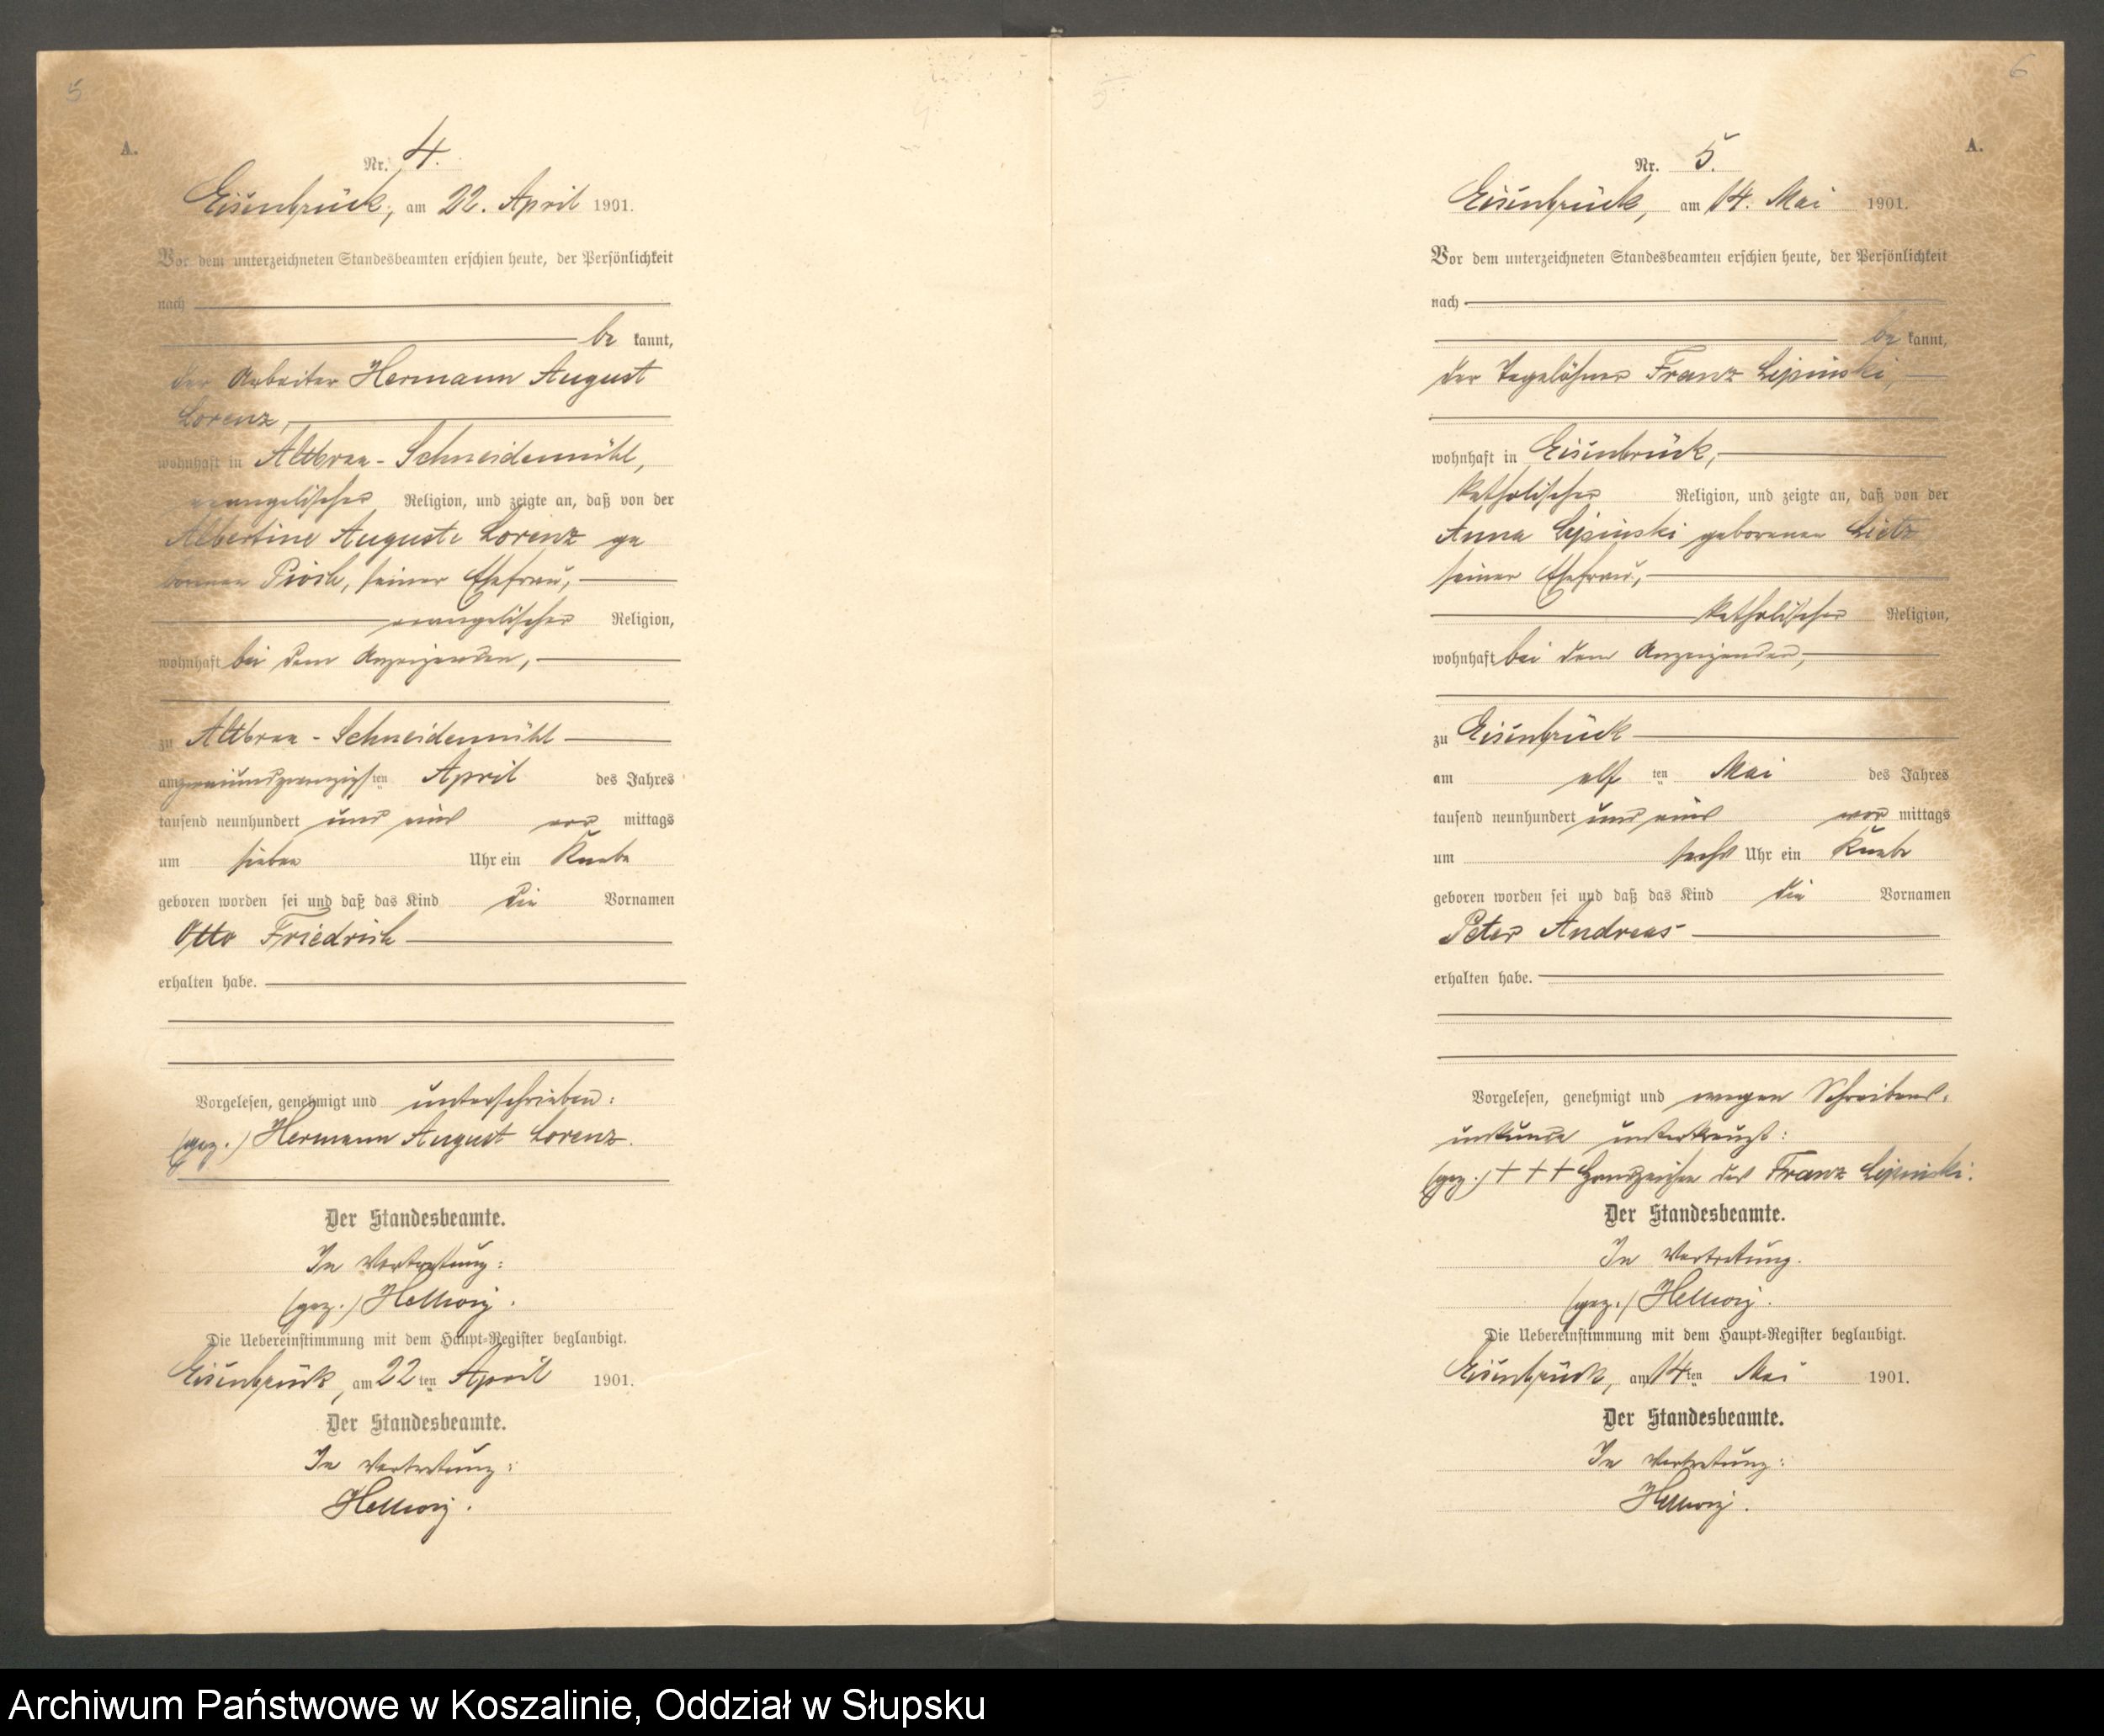 5
A.
Nr. 4.
Eisenbrück, am 22. April 1901.
Vor dem unterzeichneten Standesbeamten erschien heute, der Persönlichkeit
nach
be kannt,
der Arbeiter Hermann August
Lorenz,
wohnhaft in Altbraa-Schneidemühl,
evangelischer Religion, und zeigte an, daß von der
Albertine Auguste Lorenz ge
borenen seiner Ehefrau,
evangelischer Religion,
wohnhaft bei dem Anzeigenden,
zu Altbraa-Schneidemühl
am zweiundzwanzigsten April des Jahres
tausend neunhundert und eins vor mittags
um sieben Uhr ein Knabe
geboren worden sei und daß das Kind die Vornamen
Otto Friedrich
erhalten habe.
Vorgelesen, genehmigt und unterschrieben:
(gez.) Hermann August Lorenz.
Der Standesbeamte.
In Vertretung:
(gez.) Hellwig.
Die Uebereinstimmung mit dem Haupt-Register beglaubigt.
Eisenbrück, am 22 ten April 1901.
Der Standesbeamte.
In Vertretung:
Hellwig.
6
A.
Nr. 5.
Eisenbrück, am 14. Mai 1901.
Vor dem unterzeichneten Standesbeamten erschien heute, der Persönlichkeit
nach
be kannt,
der Tagelöhner Franz Lipinski,
wohnhaft in Eisenbrück,
katholischer Religion, und zeigte an, daß von der
Anna Lipinski geborenen Lietz
seiner Ehefrau,
katholischer Religion,
wohnhaft bei dem Anzeigenden,
zu Eisenbrück
am elf ten Mai des Jahres
tausend neunhundert und eins vor mittags
um sechs Uhr ein Knabe
geboren worden sei und daß das Kind die Vornamen
Peter Andreas
erhalten habe.
Vorgelesen, genehmigt und wegen Schreibens-
unkunde unterkreuzt:
(gez.) + + + Handzeichen des Franz Lipinski.
Der Standesbeamte.
In Vertretung.
(gez.) Hellwig.
Die Uebereinstimmung mit dem Haupt-Register beglaubigt.
Eisenbrück, am 14 ten Mai 1901.
Der Standesbeamte.
In Vertretung:
Hellwig.
Archiwum Państwowe w Koszalinie, Oddział w Słupsku